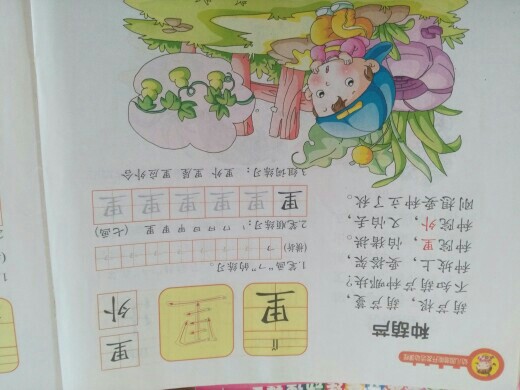 种葫芦
葫芦根，葫芦蔓，
不知葫芦种哪块？
种坡上，要搭架，
种院里，怕猪拱。
种院外，又怕丢，
刚想要种立了秋。
里
里
外
1.笔画“㇕”的练习。
(横折)
2.笔顺练习： (七画)
里 里 里 里 里 里
3.组词练习： 外里 里屋 里应外合